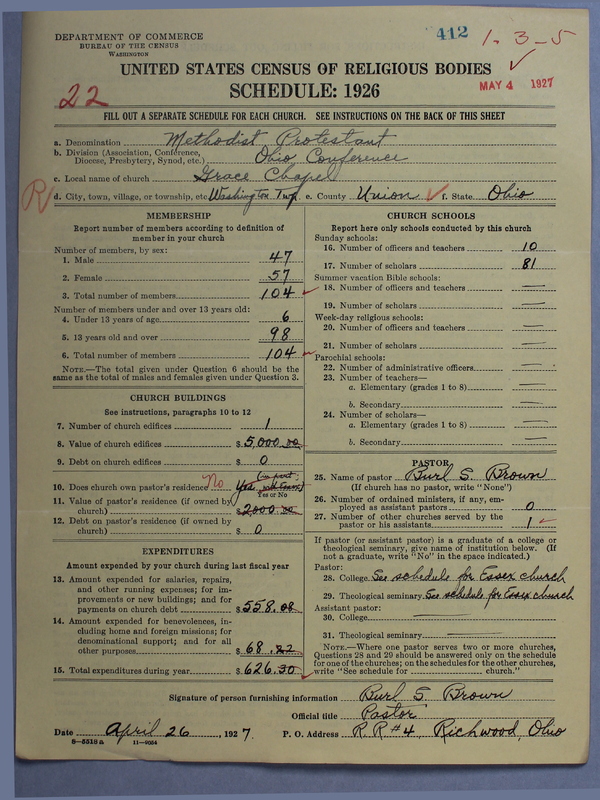 DEPARTMENT OF COMMERCE
BUREAU OF THE CENSUS
WASHINGTON
412
1-3-5
UNITED STATES CENSUS OF RELIGIOUS BODIES
SCHEDULE: 1926
MAY 4 1927
22
FILL OUT A SEPARATE SCHEDULE FOR EACH CHURCH. SEE INSTRUCTIONS ON THE BACK OF THIS SHEET
a. Denomination Methodist Protestant
b. Division (Association, Conference, Diocese, Presbytery, Synod, etc.) Ohio Conference
c. Local name of church Grace Chapel
R
d. City, town, village, or township, etc Washington Twp. e. County Union f. State Ohio
MEMBERSHIP
Report number of members according to definition of
member in your church
Number of members, by sex:
1. Male 47
2. Female 57
3. Total number of members 104
Number of members under and over 13 years old:
4. Under 13 years of age 6
5. 13 years old and over 98
6. Total number of members 104
NOTE.—The total given under Question 6 should be the
same as the total of males and females given under Question 3.
CHURCH BUILDINGS
See instructions, paragraphs 10 to 12
7. Number of church edifices 1
8. Value of church edifices $ 5,000.00
9. Debt on church edifices $ 0
10. Does church own pastor's residence No Yes (in part with Essex)
Yes or No
11. Value of pastor's residence (if owned by
church) $ 2000.00
12. Debt on pastor's residence (if owned by
church) $ 0
EXPENDITURES
Amount expended by your church during last fiscal year
13. Amount expended for salaries, repairs,
and other running expenses; for im-
provements or new buildings; and for
payments on church debt $ 558.08
14. Amount expended for benevolences, in-
cluding home and foreign missions; for
denominational support; and for all
other purposes $ 68.22
15. Total expenditures during year $ 626.30
CHURCH SCHOOLS
Report here only schools conducted by this church
Sunday schools:
16. Number of officers and teachers 10
17. Number of scholars 81
Summer vacation Bible schools:
18. Number of officers and teachers —
19. Number of scholars —
Week-day religious schools:
20. Number of officers and teachers —
21. Number of scholars —
Parochial schools:
22. Number of administrative officers —
23. Number of teachers—
a. Elementary (grades 1 to 8) —
b. Secondary —
24. Number of scholars—
a. Elementary (grades 1 to 8) —
b. Secondary —
PASTOR
25. Name of pastor Burl S. Brown
(If church has no pastor, write "None")
26. Number of ordained ministers, if any, em-
ployed as assistant pastors 0
27. Number of other churches served by the
pastor or his assistants 1
If pastor (or assistant pastor) is a graduate of a college or
theological seminary, give name of institution below. (If
not a graduate, write "No" in the space indicated.)
Pastor:
28. College See schedule for Essex church
29. Theological seminary See schedule for Essex church
Assistant pastor:
30. College —
31. Theological seminary —
NOTE.—Where one pastor serves two or more churches,
Questions 28 and 29 should be answered only on the schedule
for one of the churches; on the schedules for the other churches,
write "See schedule for church."
Signature of person furnishing information Burl S. Brown
Official title Pastor
Date April 26, 1927. P. O. Address R. R #4 Richwood, Ohio
8-5518a 11-9054